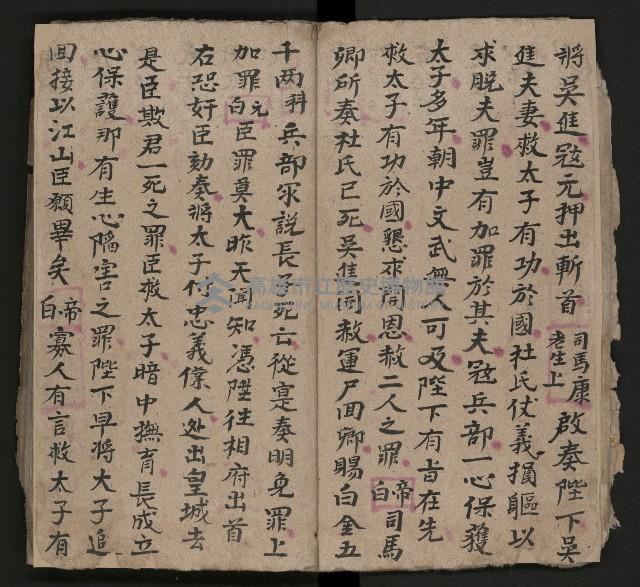 將吳進冦元押出斬首 司馬康老生上 啟奏陛下吳
進夫妻救太子有功於國杜氏仗義損軀以
求脱夫罪豈有加罪於其夫冦兵部一心保獲
太子多年朝中文武無人可及陛下有旨在先
救太子有功於國懇求同恩赦二人之罪 帝白 司馬
卿所奏杜氏已死吳進同赦運尸回卿賜白金五
千两科兵部你説長子死亡從寔奏明免罪上
加罪 元白 臣罪莫大昨天聞知憑陞往相府出首
右恐奸臣劾奏將太子付忠義僕人迯出皇城去
是臣欺君一死之罪臣救太子暗中撫育長成立
心保護那有生心陷害之罪陛下早將大子追
回接以江山臣願畢矣 帝白 寡人有言救太子有
高雄市立歷史博物館
KAOHSIUNG MUSEUM OF HISTORY